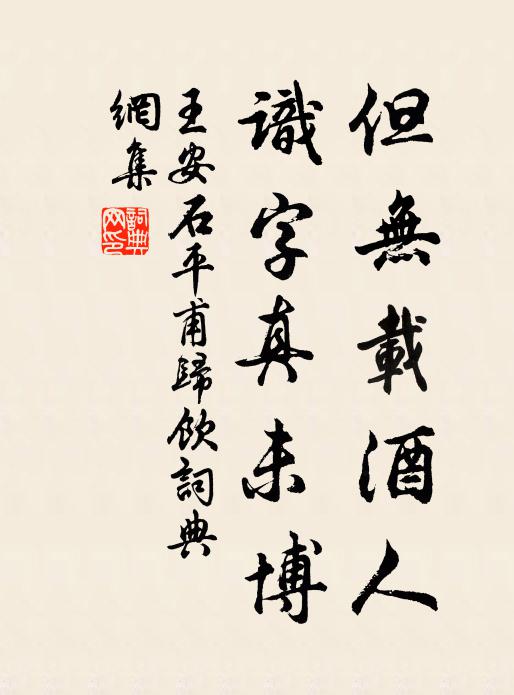 但無載酒人
識字真未博
王安石平甫歸飲詞典
網集
詞典網印